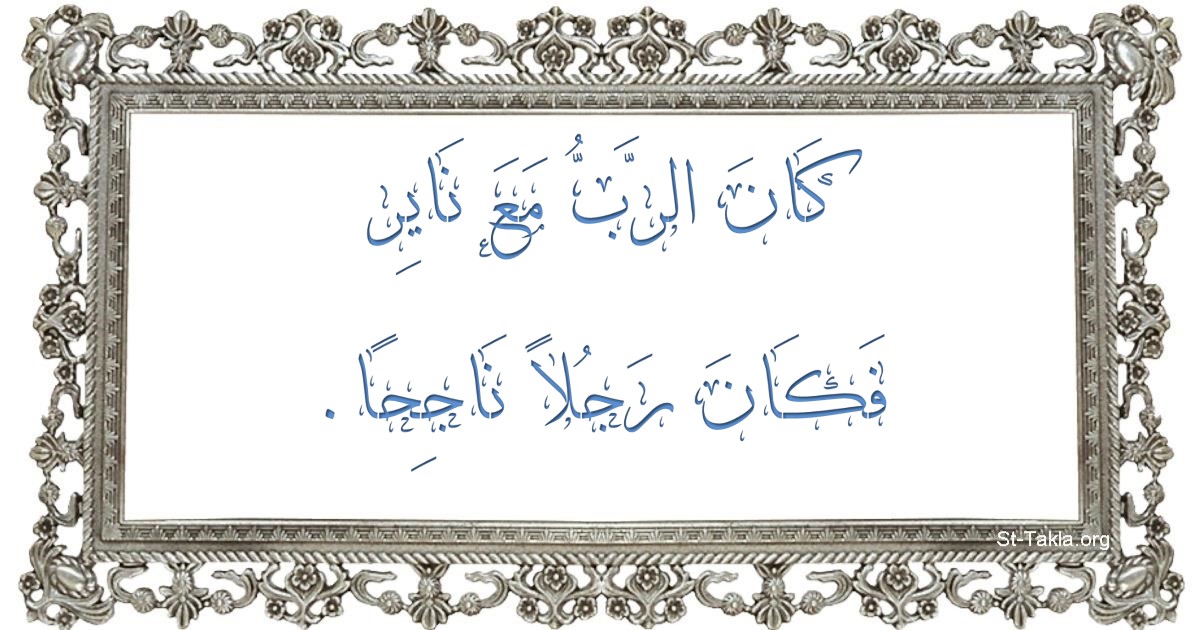 كَانَ الرَّبُّ مَعَ نَايِرِ
فَكَانَ رَجُلاً نَاجِحًا .
St-Takla.org